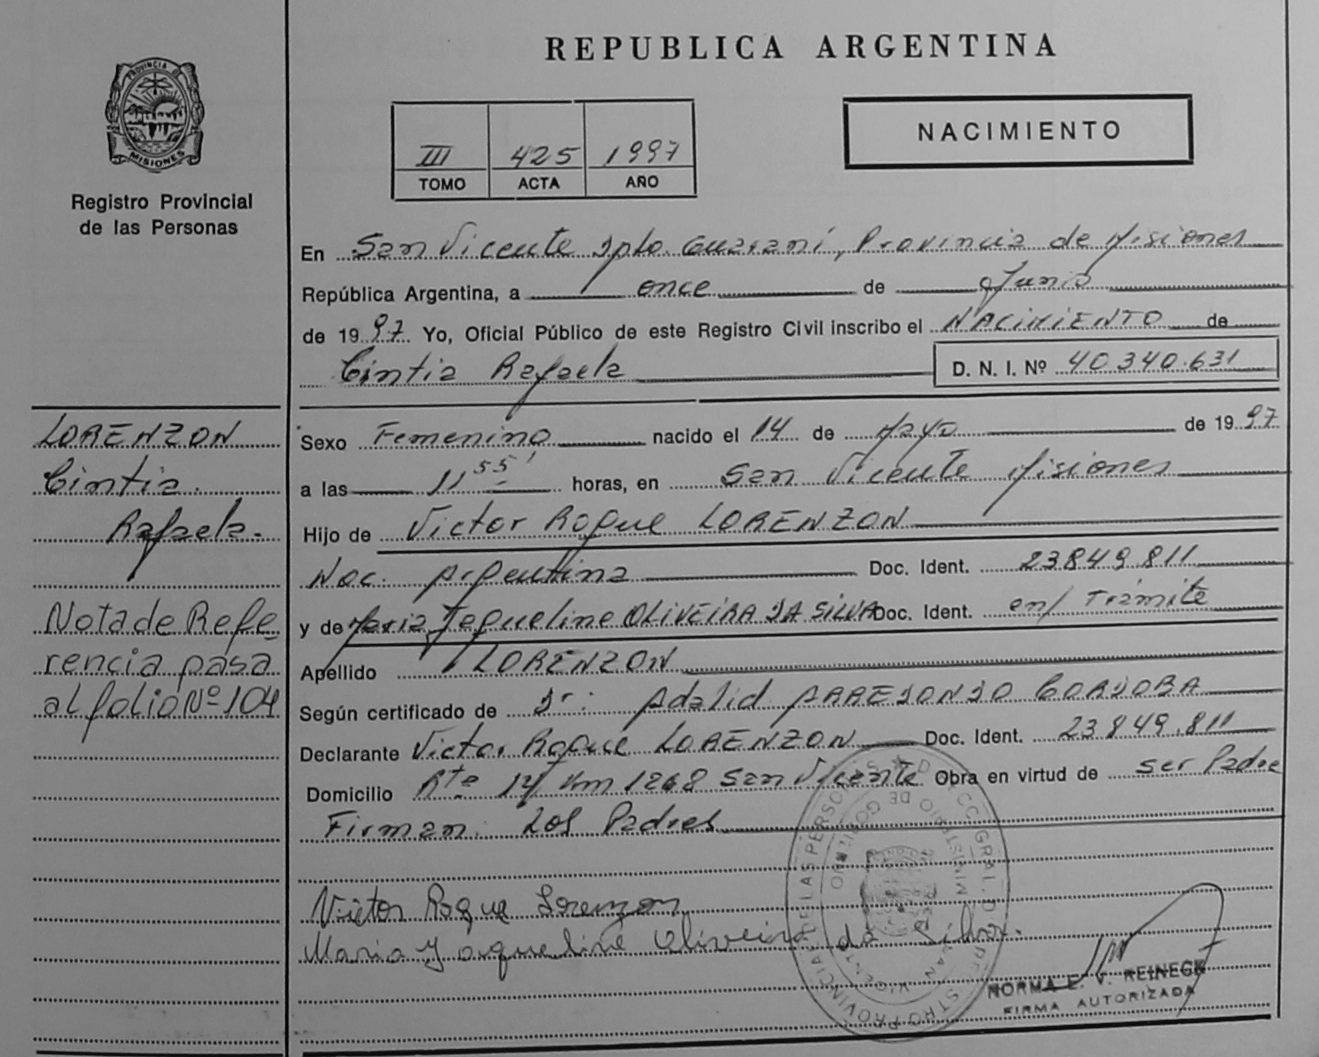 REPUBLICA ARGENTINA
PROVINCIA DE
MISIONES
Registro Provincial
de las Personas
III 425 1997
TOMO ACTA AÑO
NACIMIENTO
En San Vicente Dpto. Guaraní, Provincia de Misiones
República Argentina, a once de Junio
de 1997 Yo, Oficial Público de este Registro Civil inscribo el NACIMIENTO de
Cintia Rafaela D. N. I. Nº 40.340.631
LORENZON
Cintia
Rafaela.
Nota de Refe
rencia pasa
al folio Nº 104
Sexo Femenino nacido el 14 de Mayo de 1997
a las 11 55' horas, en San Vicente Misiones
Hijo de Victor Roque LORENZON
Nac. Argentina Doc. Ident. 23849.811
y de Maria Jaqueline OLIVEIRA DA SILVA Doc. Ident. en/ Trámite
Apellido LORENZON
Según certificado de Dr. Adalid ARREDONDO CORDOBA
Declarante Victor Roque LORENZON Doc. Ident. 23849.811
Domicilio Rta 14 Km 1268 San Vicente Obra en virtud de ser Padre
Firman: Los Padres
Victor Roque Lorenzon
Maria Yaqueline Oliveira da Silva.
NORMA E. V. REINECK
FIRMA AUTORIZADA